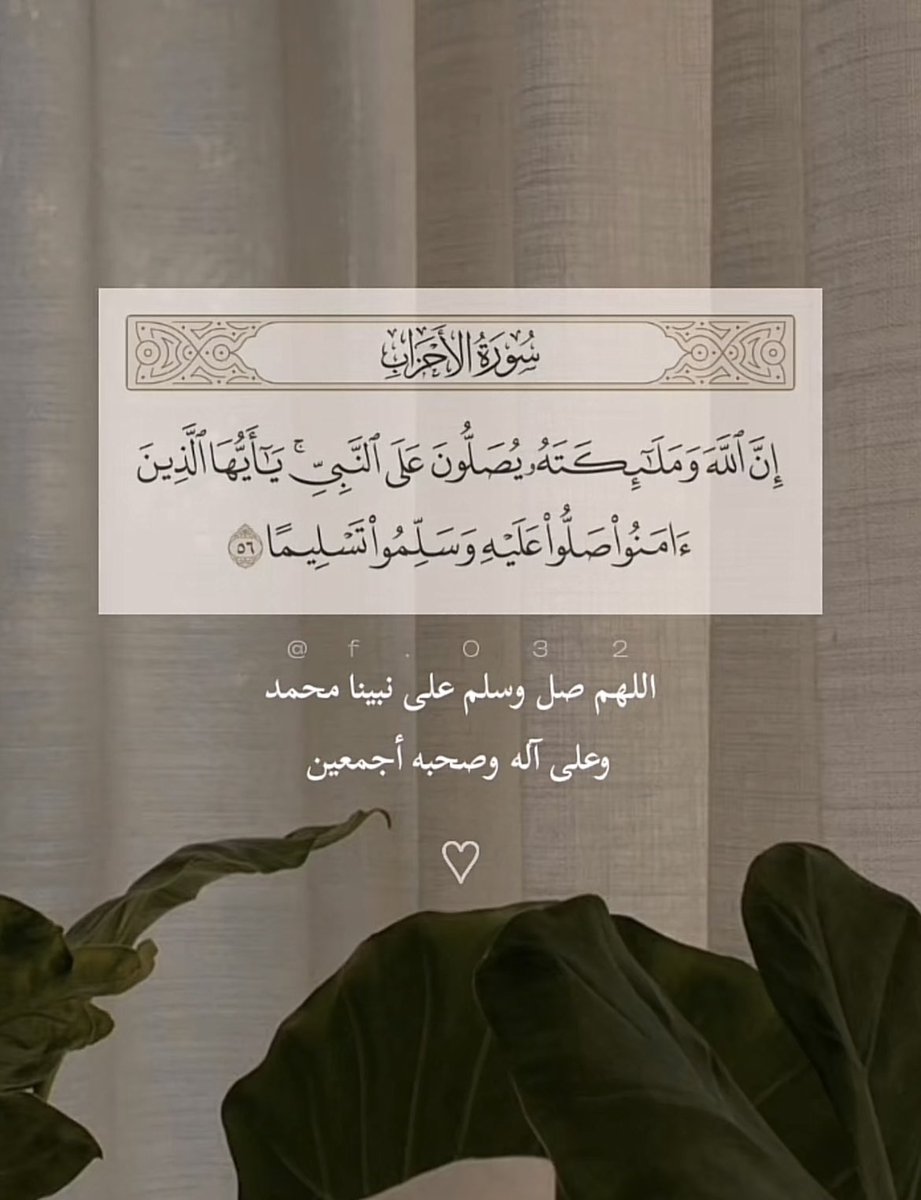 سُورَةُ الأَحْزَابِ
إِنَّ ٱللَّهَ وَمَلَـٰٓئِكَتَهُۥ يُصَلُّونَ عَلَى ٱلنَّبِىِّ ۚ يَـٰٓأَيُّهَا ٱلَّذِينَ
ءَامَنُوا۟ صَلُّوا۟ عَلَيْهِ وَسَلِّمُوا۟ تَسْلِيمًا ٥٦
@f.032
اللهم صل وسلم على نبينا محمد
وعلى آله وصحبه أجمعين